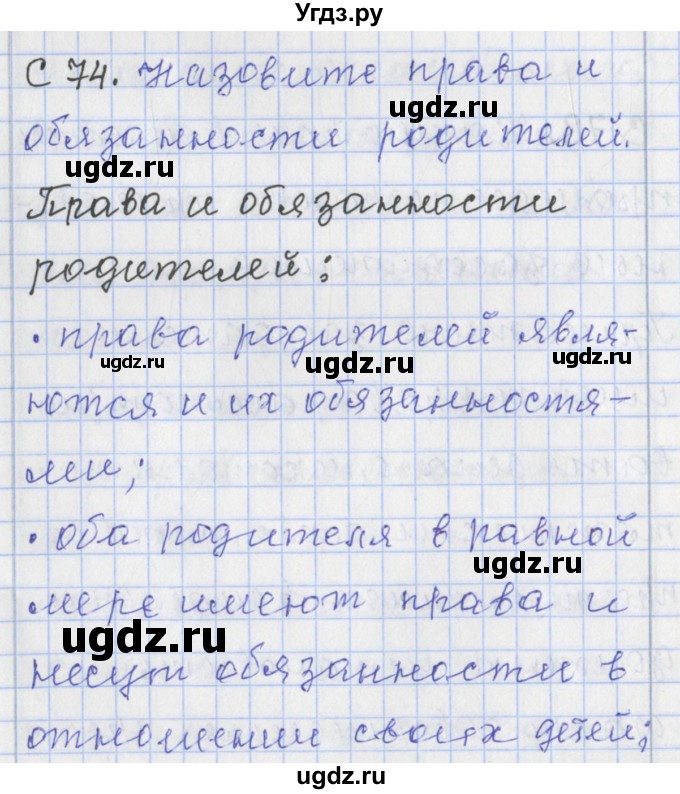 Угдз.ру
С 74. Назовите права и
обязанности родителей.
Права и обязанности
родителей:
• права родителей явля-
ются и их обязанностя-
ми;
• оба родителя в равной
мере имеют права и
несут обязанности в
отношении своих детей;
ugdz.ru
ugdz.ru
ugdz.ru
ugdz.ru
ugdz.ru
ugdz.ru
ugdz.ru
ugdz.ru
ugdz.ru
ugdz.ru
ugdz.ru